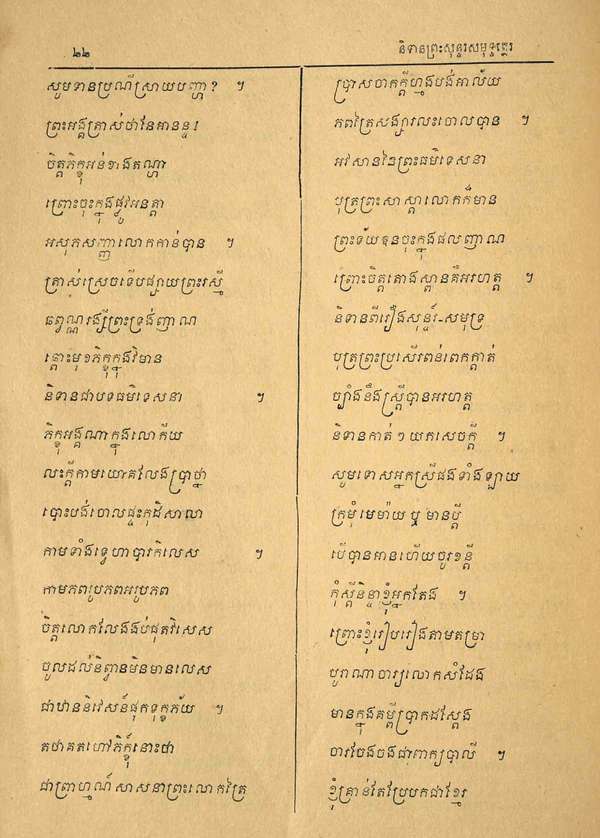 ២២
និទានព្រះសុន្ទរសមុទ្ទត្ថេរ
សូមទានប្រណីស្រាយបញ្ហា ? ៗ
ព្រះអង្គត្រាស់ថានែអានន្ទ !
ចិត្តភិក្ខុអន់ខាងតណ្ហា
ព្រោះចុះក្នុងផ្លូវអនត្តា
អសុភសញ្ញាលោកកាន់បាន ៗ
ត្រាស់ស្រេចទើបផ្សាយព្រះរស្មី
ឆព្វណ្ណរង្សីព្រះទ្រង់ញាណ
ឆ្ពោះមុខភិក្ខុក្នុងវិមាន
និទានជាបទធម៌ទេសនា ៗ
ភិក្ខុអង្គណាក្នុងលោកីយ
លះក្តីកាមយោគលែងប្រាថ្នា
បោះបង់ចោលផ្ទះកុដិសាលា
កាមទាំងទ្វេហាបារកិលេស ៗ
កាមភពរូបភពអរូបភព
ចិត្តលោកលែងងប់ផុតវិសេស
ចូលដល់និព្វានមិនមានលេស
ជាឋាននិវេសន៍ផុតទុក្ខភ័យ ៗ
តថាគតហៅភិក្ខុនោះថា
ជាព្រាហ្មណ៍សាសនាព្រះលោកត្រៃ
ប្រាសចាកក្តីហ្មងបង់អាល័យ
ភពត្រៃសង្សារលះចោលបាន ៗ
អវសាននៃព្រះធម៌ទេសនា
បុត្រព្រះសាស្តាលោកក៏មាន
ព្រះទ័យខុនចុះក្នុងផលញាណ
ព្រោះចិត្តតោងស្ពានគឺអរហត្ត ៗ
និទានពីរឿងសុន្ទរ៍-សមុទ្រ
បុត្រព្រះប្រសើរពន់ពេកក្តាត់
ច្បាំងនឹងស្ត្រីបានអរហត្ត
និទានកាត់ ៗ យកសេចក្តី ៗ
សូមទោសអ្នកស្រីផងទាំងឡាយ
ក្រមុំមេម៉ាយ ឬ មានប្តី
បើបានអានហើយចូរខន្តី
កុំស្តីនិន្ទាខ្ញុំអ្នកតែង ៗ
ព្រោះខ្ញុំរៀបរៀងតាមតម្រា
បូរាណាចារ្យលោកសំដែង
មានក្នុងគម្ពីប្រាកដស្តែង
ចារចែងចងជាពាក្យបាលី ៗ
ខ្ញុំគ្រាន់តែប្រែមកជាខ្មែរ